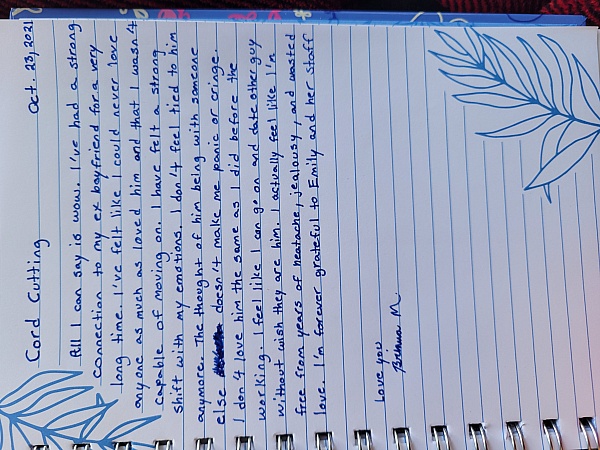 Cord Cutting Oct. 23, 2021
All I can say is wow. I've had a strong
connection to my ex boyfriend for a very
long time. I've felt like I could never love
anyone as much as loved him and that I wasn't
capable of moving on. I have felt a strong
shift with my emotions. I don't feel tied to him
anymore. The thought of him being with someone
else doesn't make me panic or cringe.
I don't love him the same as I did before the
working. I feel like I can go on and date other guy
without wish they are him. I actually feel like I'm
free from years of heatache, jealousy, and wasted
love. I'm forever grateful to Emily and her staff
Love you
Brenna M.